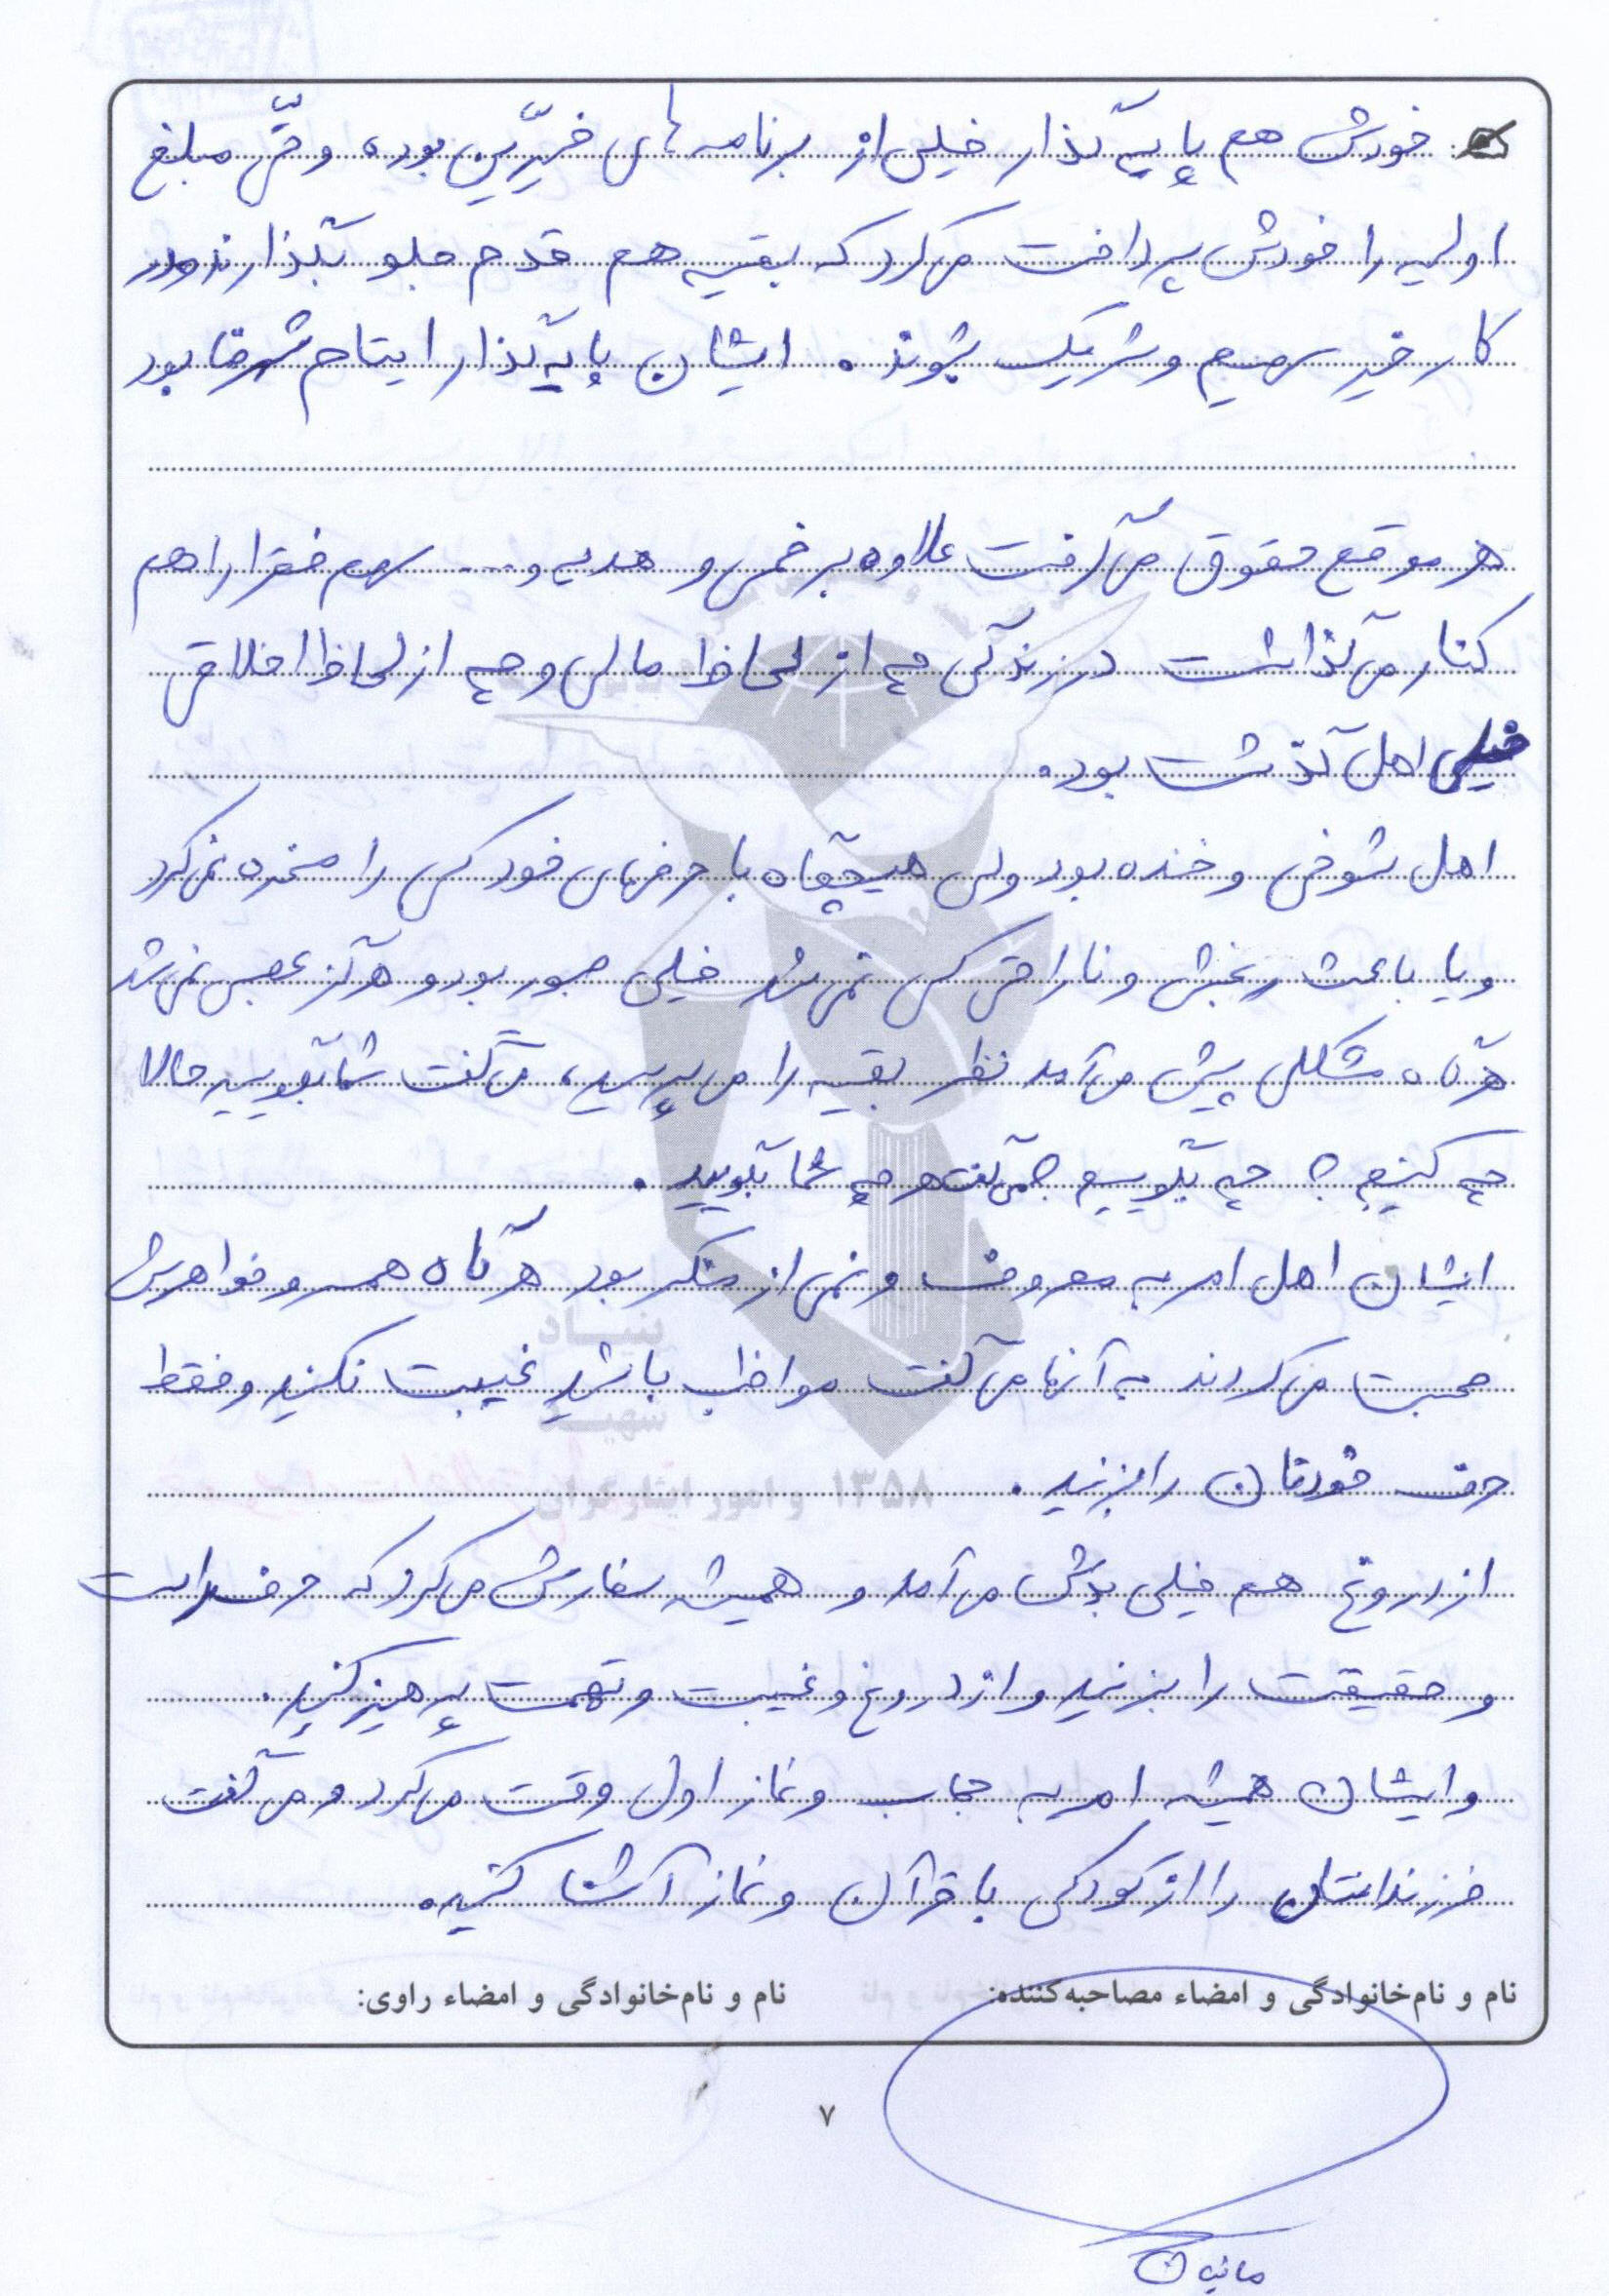 خودش هم پایه گذار خیلی از برنامه های خیّرین بوده و حتّی مبلغ
اولیه را خودش پرداخت می کرد که بقیه هم قدم جلو بگذارند و در
کار خیر سهیم و شریک بشوند. ایشان پایه گذار ایتام شهرضا بود
هر موقع حقوق می گرفت علاوه بر خمس و هدیه و.... سهم فقرا را هم
کنار می گذاشت در زندگی چه از لحاظ مالی و چه از لحاظ اخلاقی
خیلی اهل گذشت بود.
اهل شوخی و خنده بود ولی هیچگاه با حرفهای خود کسی را مسخره نمی کرد
و یا باعث رنجش و ناراحتی کسی نمی شد خیلی صبور بود و هرگز عصبی نمی شد
هرگاه مشکلی پیش می آمد نظر بقیه را می پرسید، می گفت شما بگویید حالا
چه کنیم؟ چه بگوییم؟ می گفت هر چه شما بگویید.
ایشان اهل امر به معروف و نهی از منکر بود هرگاه همسر و خواهرش
صحبت می کردند به آنها می گفت مواظب باشید غیبت نکنید و فقط
حرف خودتان را بزنید.
از دروغ هم خیلی بدش می آمد و همیشه سفارش می کرد که حرف راست
و حقیقت را بزنید و از دروغ و غیبت و تهمت پرهیز کنید.
و ایشان همیشه امر به حجاب و نماز اول وقت می کرد و می گفت
فرزندانتان را از کودکی با قرآن و نماز آشنا کنید.
بنیاد
شهید
و امور ایثارگران ۱۳۵۸
نام و نام‌خانوادگی و امضاء مصاحبه‌کننده: نام و نام‌خانوادگی و امضاء راوی:
۷